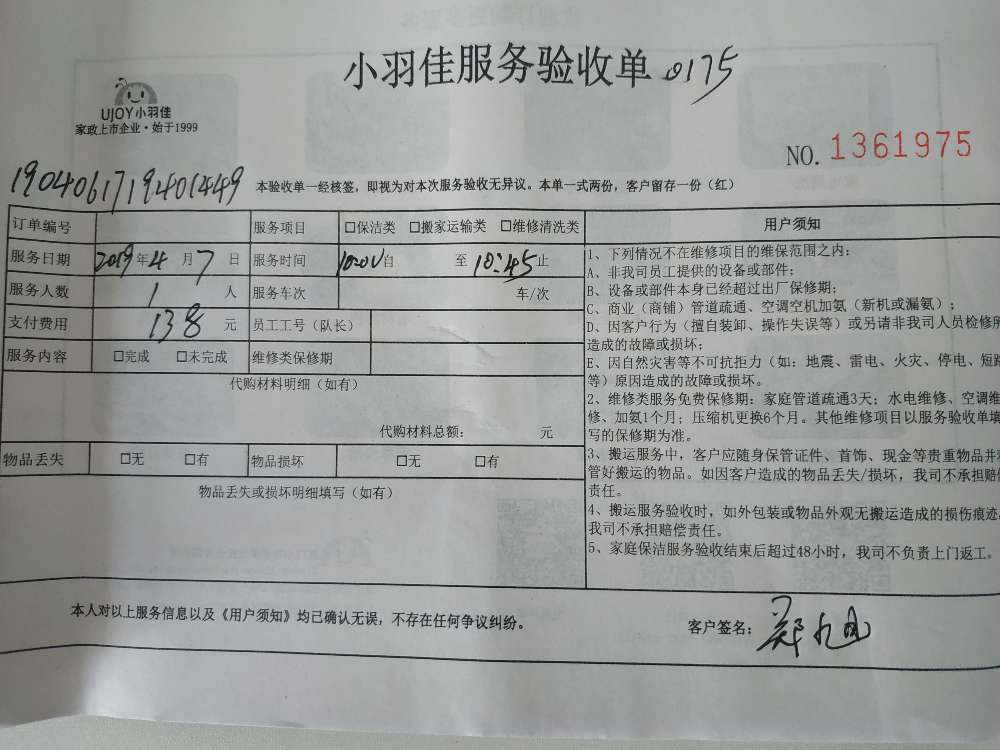 小羽佳服务验收单 0175
UJOY小羽佳
家政上市企业·始于1999
NO. 1361975
1904061719401449
本验收单一经核签，即视为对本次服务验收无异议。本单一式两份，客户留存一份（红）
订单编号 服务项目 □保洁类 □搬家运输类 □维修清洗类
服务日期 2019年4月7日 服务时间 自 至 10:45止
服务人数 1 人 服务车次 车/次
支付费用 138 元 员工工号（队长）
服务内容 □完成 □未完成 维修类保修期
代购材料明细（如有）
代购材料总额： 元
物品丢失 □无 □有 物品损坏 □无 □有
物品丢失或损坏明细填写（如有）
用户须知
1、下列情况不在维修项目的维保范围之内：
A、非我司员工提供的设备或部件；
B、设备或部件本身已经超过出厂保修期；
C、商业（商铺）管道疏通、空调空机加氨（新机或漏氨）；
D、因客户行为（擅自装卸、操作失误等）或另请非我司人员检修所
造成的故障或损坏；
E、因自然灾害等不可抗拒力（如：地震、雷电、火灾、停电、短路
等）原因造成的故障或损坏。
2、维修类服务免费保修期：家庭管道疏通3天；水电维修、空调维
修、加氨1个月；压缩机更换6个月。其他维修项目以服务验收单填
写的保修期为准。
3、搬运服务中，客户应随身保管证件、首饰、现金等贵重物品并
管好搬运的物品。如因客户造成的物品丢失/损坏，我司不承担赔
责任。
4、搬运服务验收时，如外包装或物品外观无搬运造成的损伤痕迹
我司不承担赔偿责任。
5、家庭保洁服务验收结束后超过48小时，我司不负责上门返工。
本人对以上服务信息以及《用户须知》均已确认无误，不存在任何争议纠纷。
客户签名： 郑